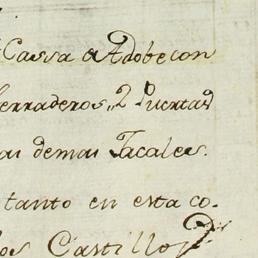 Cassa de Adobe con
erraderos, 2 Puertas
as demas Jacales.
tanto en esta co-
los Castillo